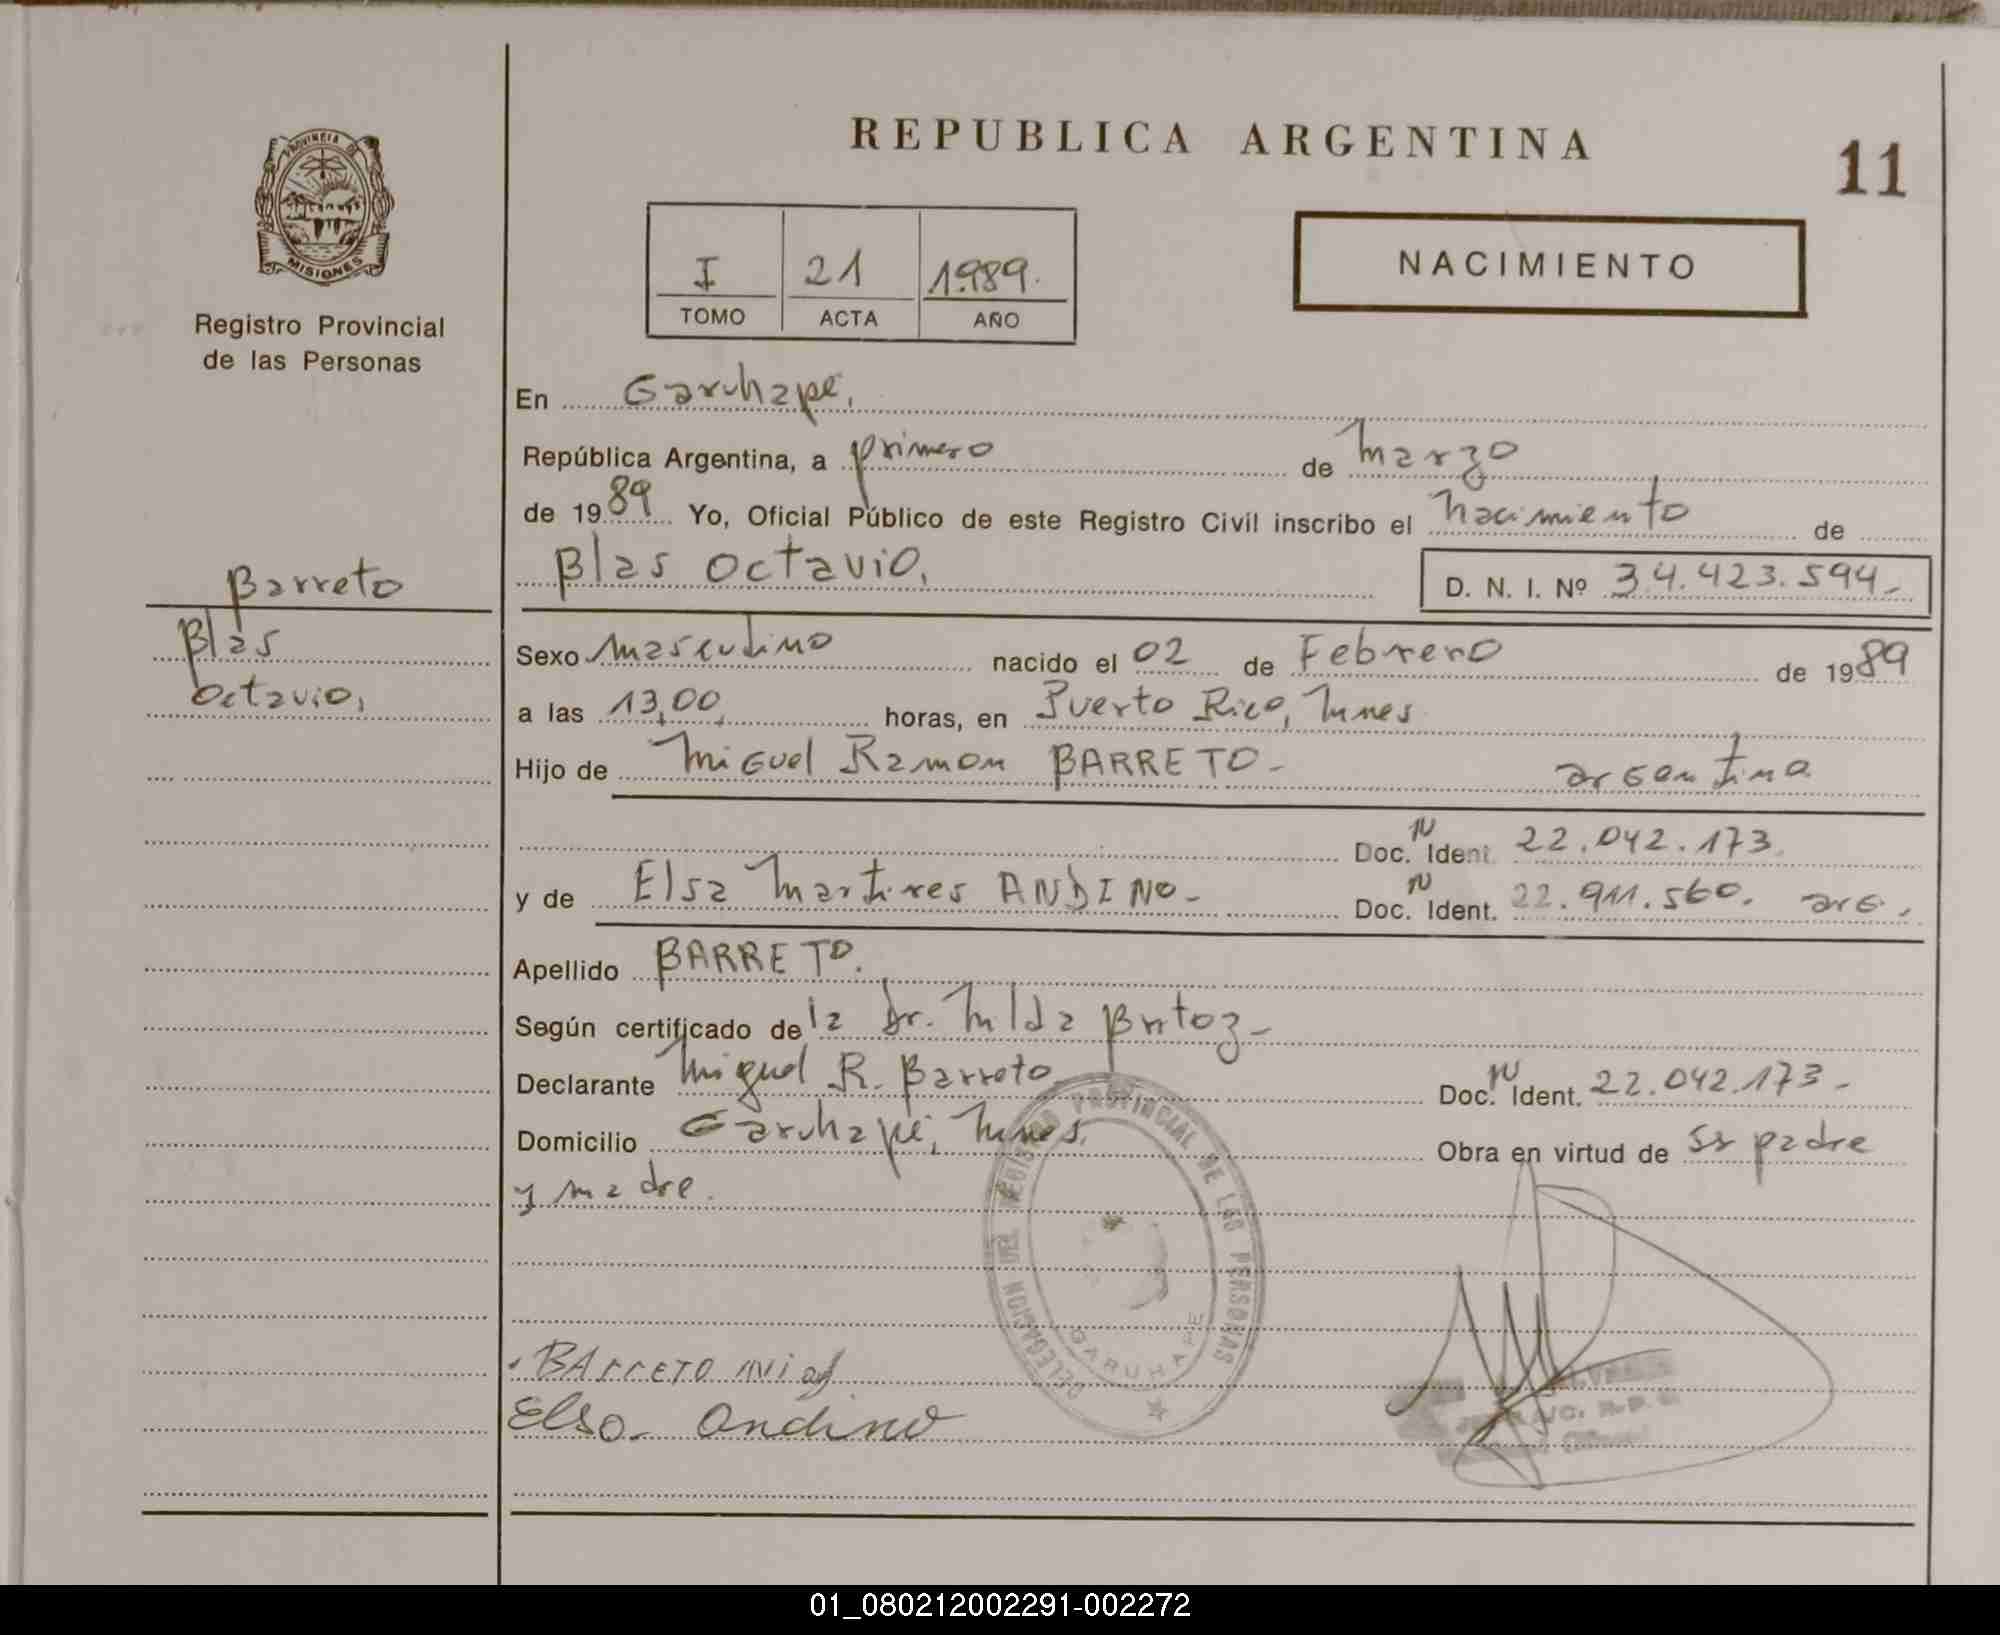 REPUBLICA ARGENTINA
11
PROVINCIA DE
MISIONES
Registro Provincial
de las Personas
I 21 1989.
TOMO ACTA AÑO
NACIMIENTO
En Garuhapé,
República Argentina, a primero de marzo
de 1989 Yo, Oficial Público de este Registro Civil inscribo el nacimiento de
Blas Octavio, D. N. I. Nº 34.423.594-
Barreto
Blas
Octavio,
Sexo masculino nacido el 02 de Febrero de 1989
a las 13,00, horas, en Puerto Rico, Mnes.
Hijo de Miguel Ramon BARRETO- argentina
Doc. N Ident. 22.042.173
y de Elsa Martires ANDINO- Doc. N Ident. 22.911.560. arg.
Apellido BARRETO.
Según certificado de la Dr. Nilda
Declarante Miguel R. Barreto Doc. N Ident. 22.042.173-
Domicilio Garuhapé, Mnes. Obra en virtud de ss padre
y madre.
DELEGACION DEL REGISTRO PROVINCIAL DE LAS PERSONAS
GARUHAPE
BArreTO
Elsa Andino
01_080212002291-002272